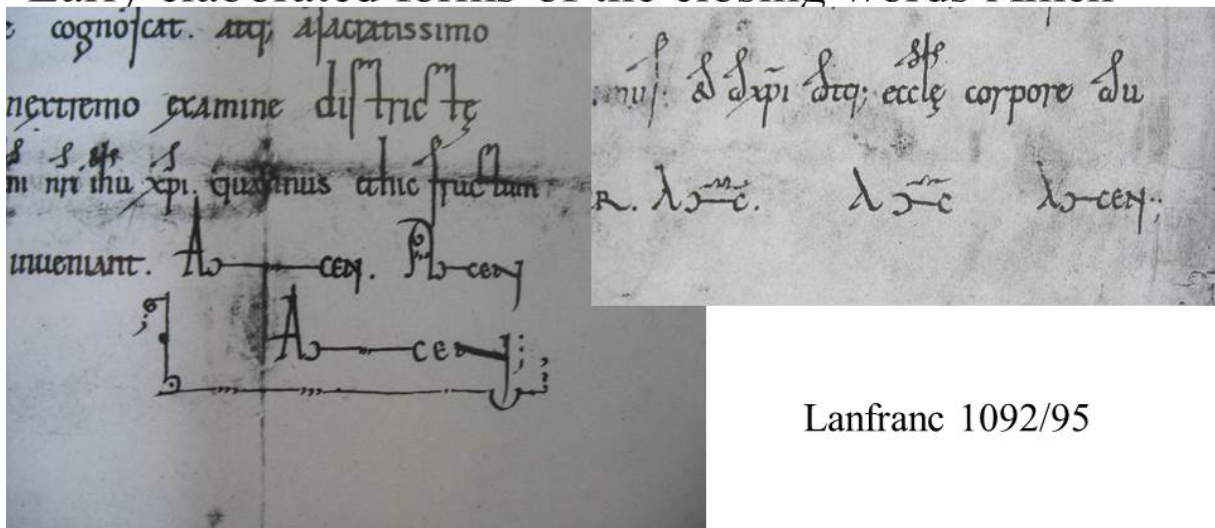 Early elaborated forms of the closing words Amen
cognoscat. atq; a sacratissimo
inextremo examine districtę
ni nri ihu xpi. quatinus ethic fructum
inueniant. Amen. Amen
Amen
& a xpi atq; ecclę corpore au
R. Amen. Amen Amen
Lanfranc 1092/95